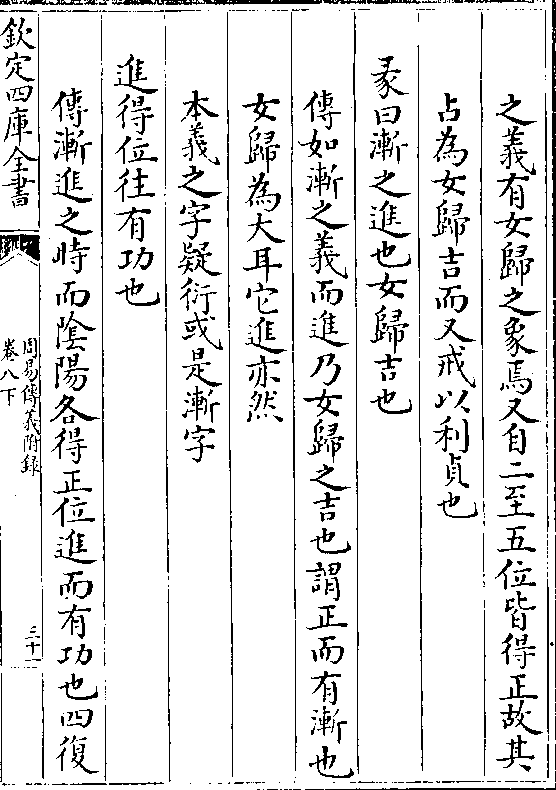 之義有女歸之象焉又自二至五位皆得正故其
占為女歸吉而又戒以利貞也
彖曰漸之進也女歸吉也
傳如漸之義而進乃女歸之吉也謂正而有漸也
女歸為大耳它進亦然
本義之字疑衍或是漸字
進得位往有功也
傳漸進之時而陰陽各得正位進而有功也四復
欽定四庫全書
周易傳義附録
卷八下
三十一